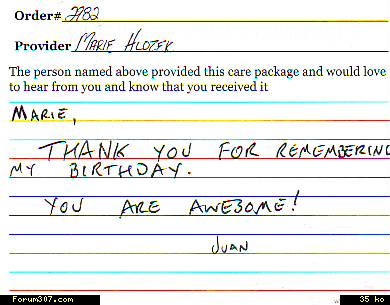 Order# 2982
Provider MARIE HLOZEK
The person named above provided this care package and would love
to hear from you and know that you received it
MARIE,
THANK YOU FOR REMEMBERING
MY BIRTHDAY.
YOU ARE AWESOME!
JUAN
Forum307.com
35 ko